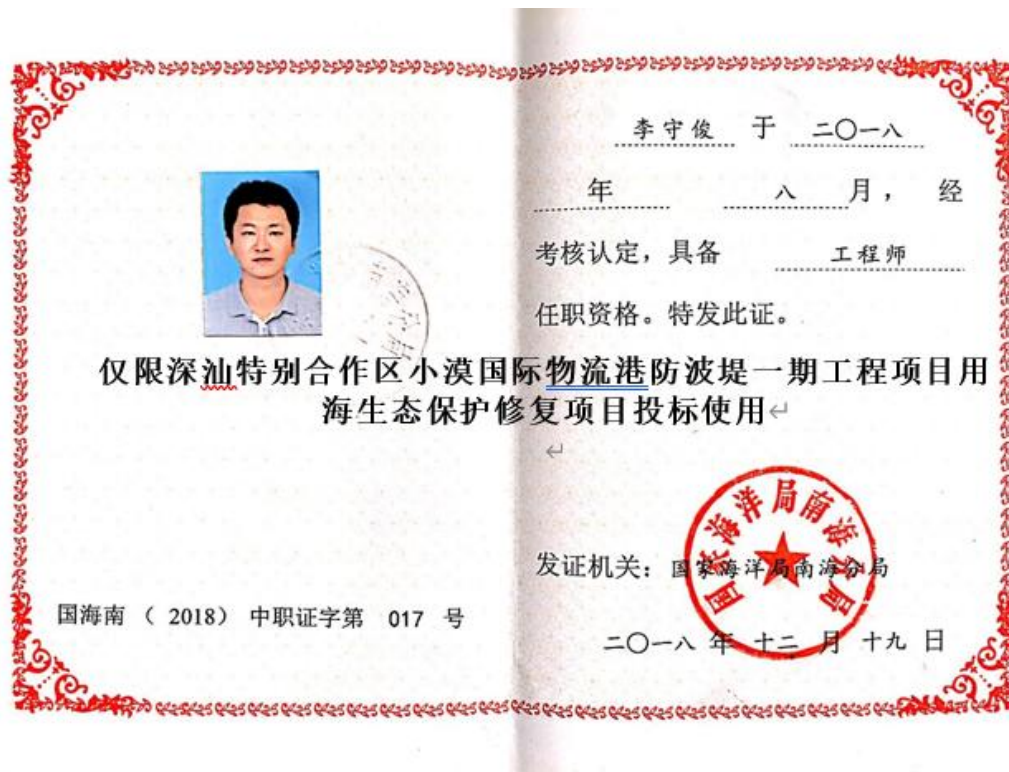 李守俊 于 二〇一八
年 八 月， 经
考核认定，具备 工程师
任职资格。特发此证。
仅限深汕特别合作区小漠国际物流港防波堤一期工程项目用
海生态保护修复项目投标使用
国家海洋局南海分局
发证机关：国家海洋局南海分局
国海南（ 2018） 中职证字第 017 号
二〇一八 年 十二 月 十九 日